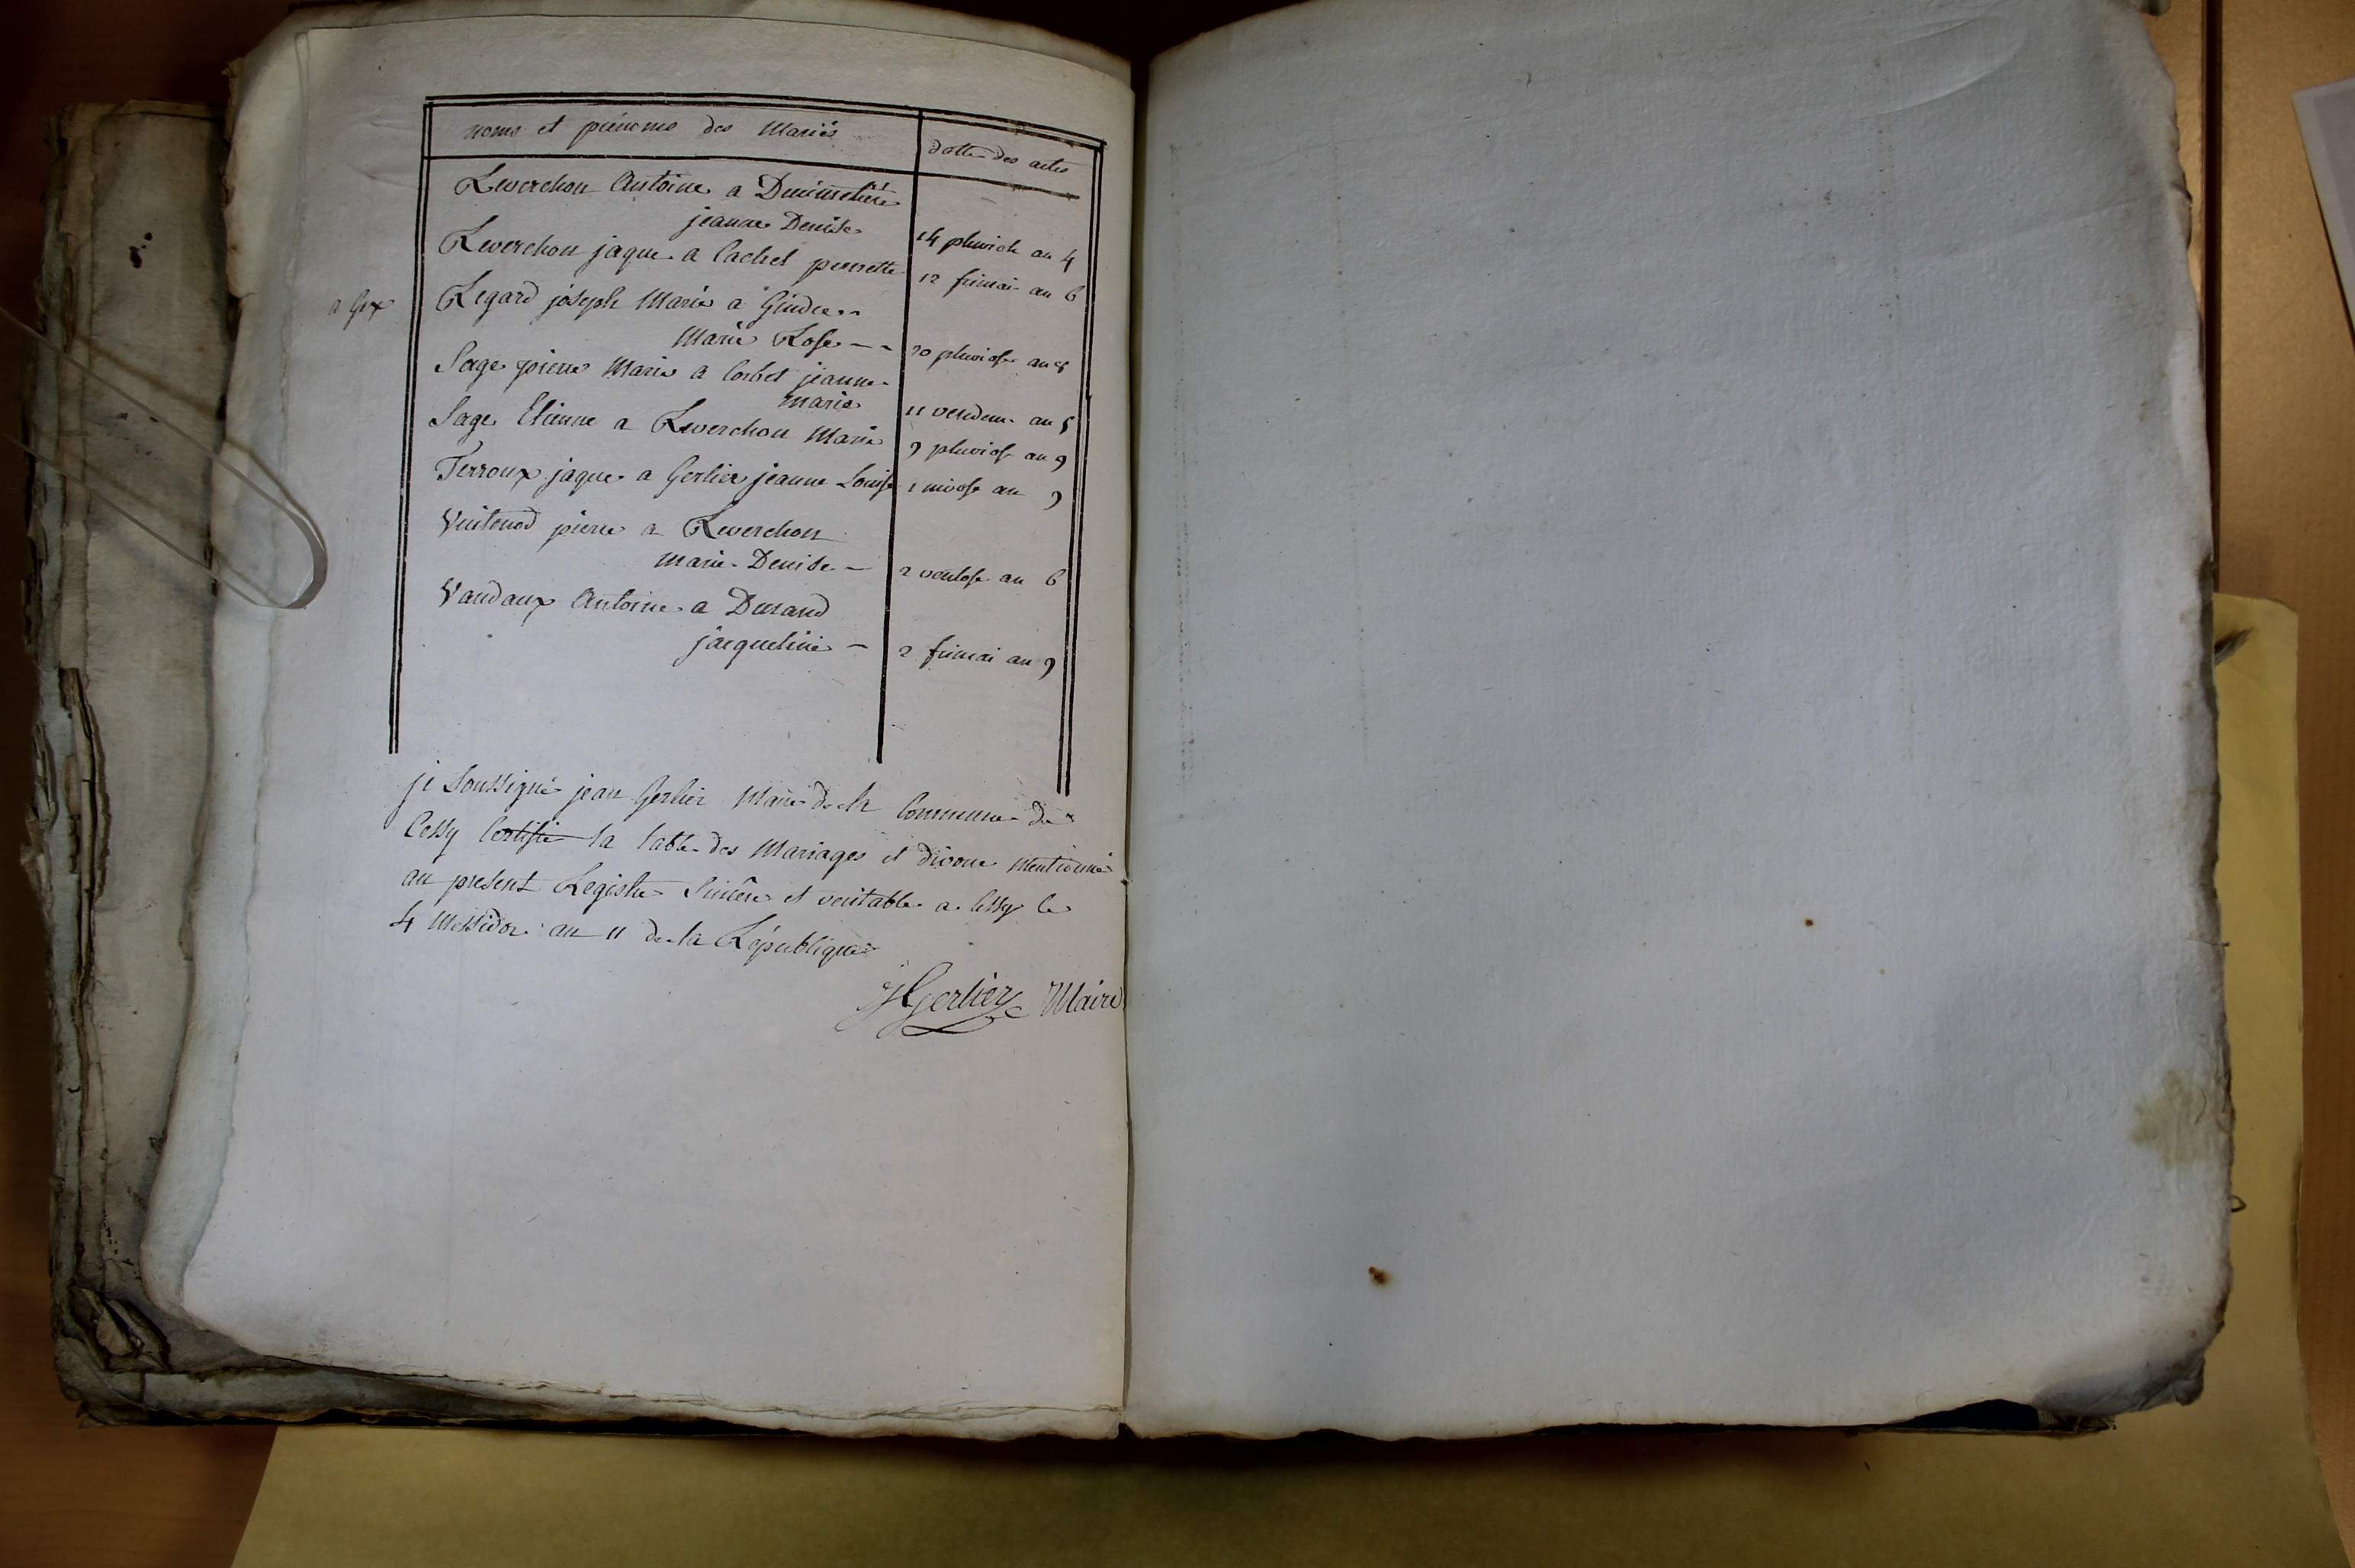 noms et prénoms des Mariés
datte des actes
Reverchon Antoine a Ducimetière
jeanne Denise
14 pluviose an 4
Reverchon jaque a Cachet perrette
12 frimai an 6
a Gex
Regard joseph Marie a Gindre
Marie Rose -- 20 pluviose an 8
Sage pierre Marie a Corbet jeanne
marie
11 vendem. an 5
Sage Etienne a Reverchon Marie
9 pluviose an 9
Terroux jaque a Gerlier jeanne Louise
1 nivose an 9
Vuitenod pierre a Reverchon
marie Denise - 2 ventose an 6
Vandaux Antoine a Durand
jacqueline - 2 frimai an 9
je Soussigné jean Gerlier Maire de la Commune de
Cessy Certifie la table des Mariages et divorce mentionné
au present Registre Sincère et veritable a Cessy le
4 Messidor an 11 de la République
JGerlier Maire